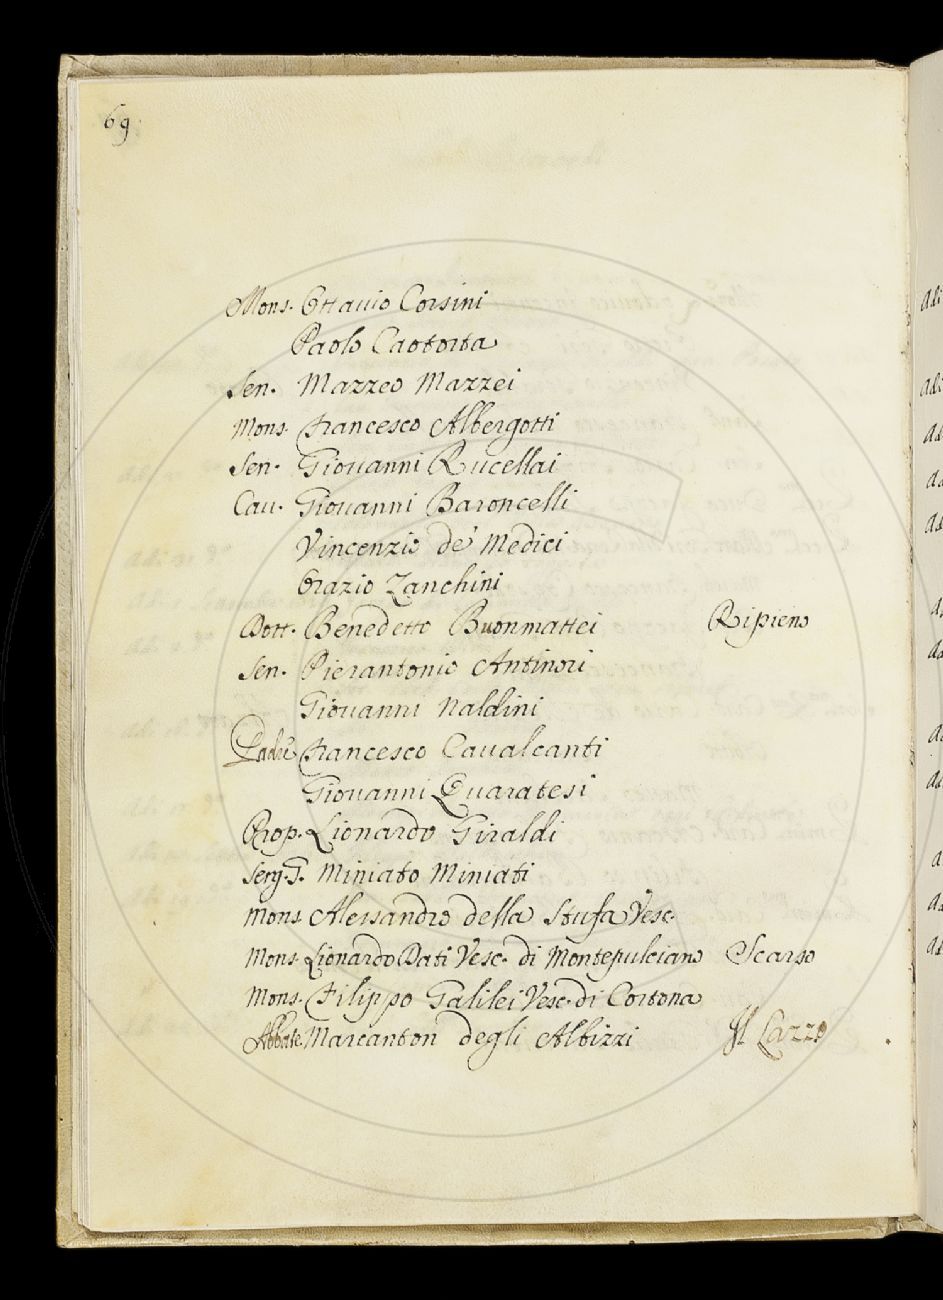 69
Mons. Ottauio Corsini
Paolo Caotorta
Sen. Mazzeo Mazzei
Mons. Francesco Albergotti
Sen. Giouanni Rucellai
Cau. Giouanni Baroncelli
Vincenzio de' Medici
Orazio Zanchini
Dott. Benedetto Buonmattei Ripieno
Sen. Pierantonio Antinori
Giouanni Naldini
Francesco Caualcanti
Giouanni Quaratesi
Prop. Lionardo Giraldi
Serg. G. Miniato Miniati
Mons. Alessandro della Stufa Vesc.
Mons. Lionardo Dati Vesc. di Montepulciano Scarso
Mons. Filippo Galilei Vesc. di Cortona
Abbate. Marcanton degli Albizzi Il Lazzo